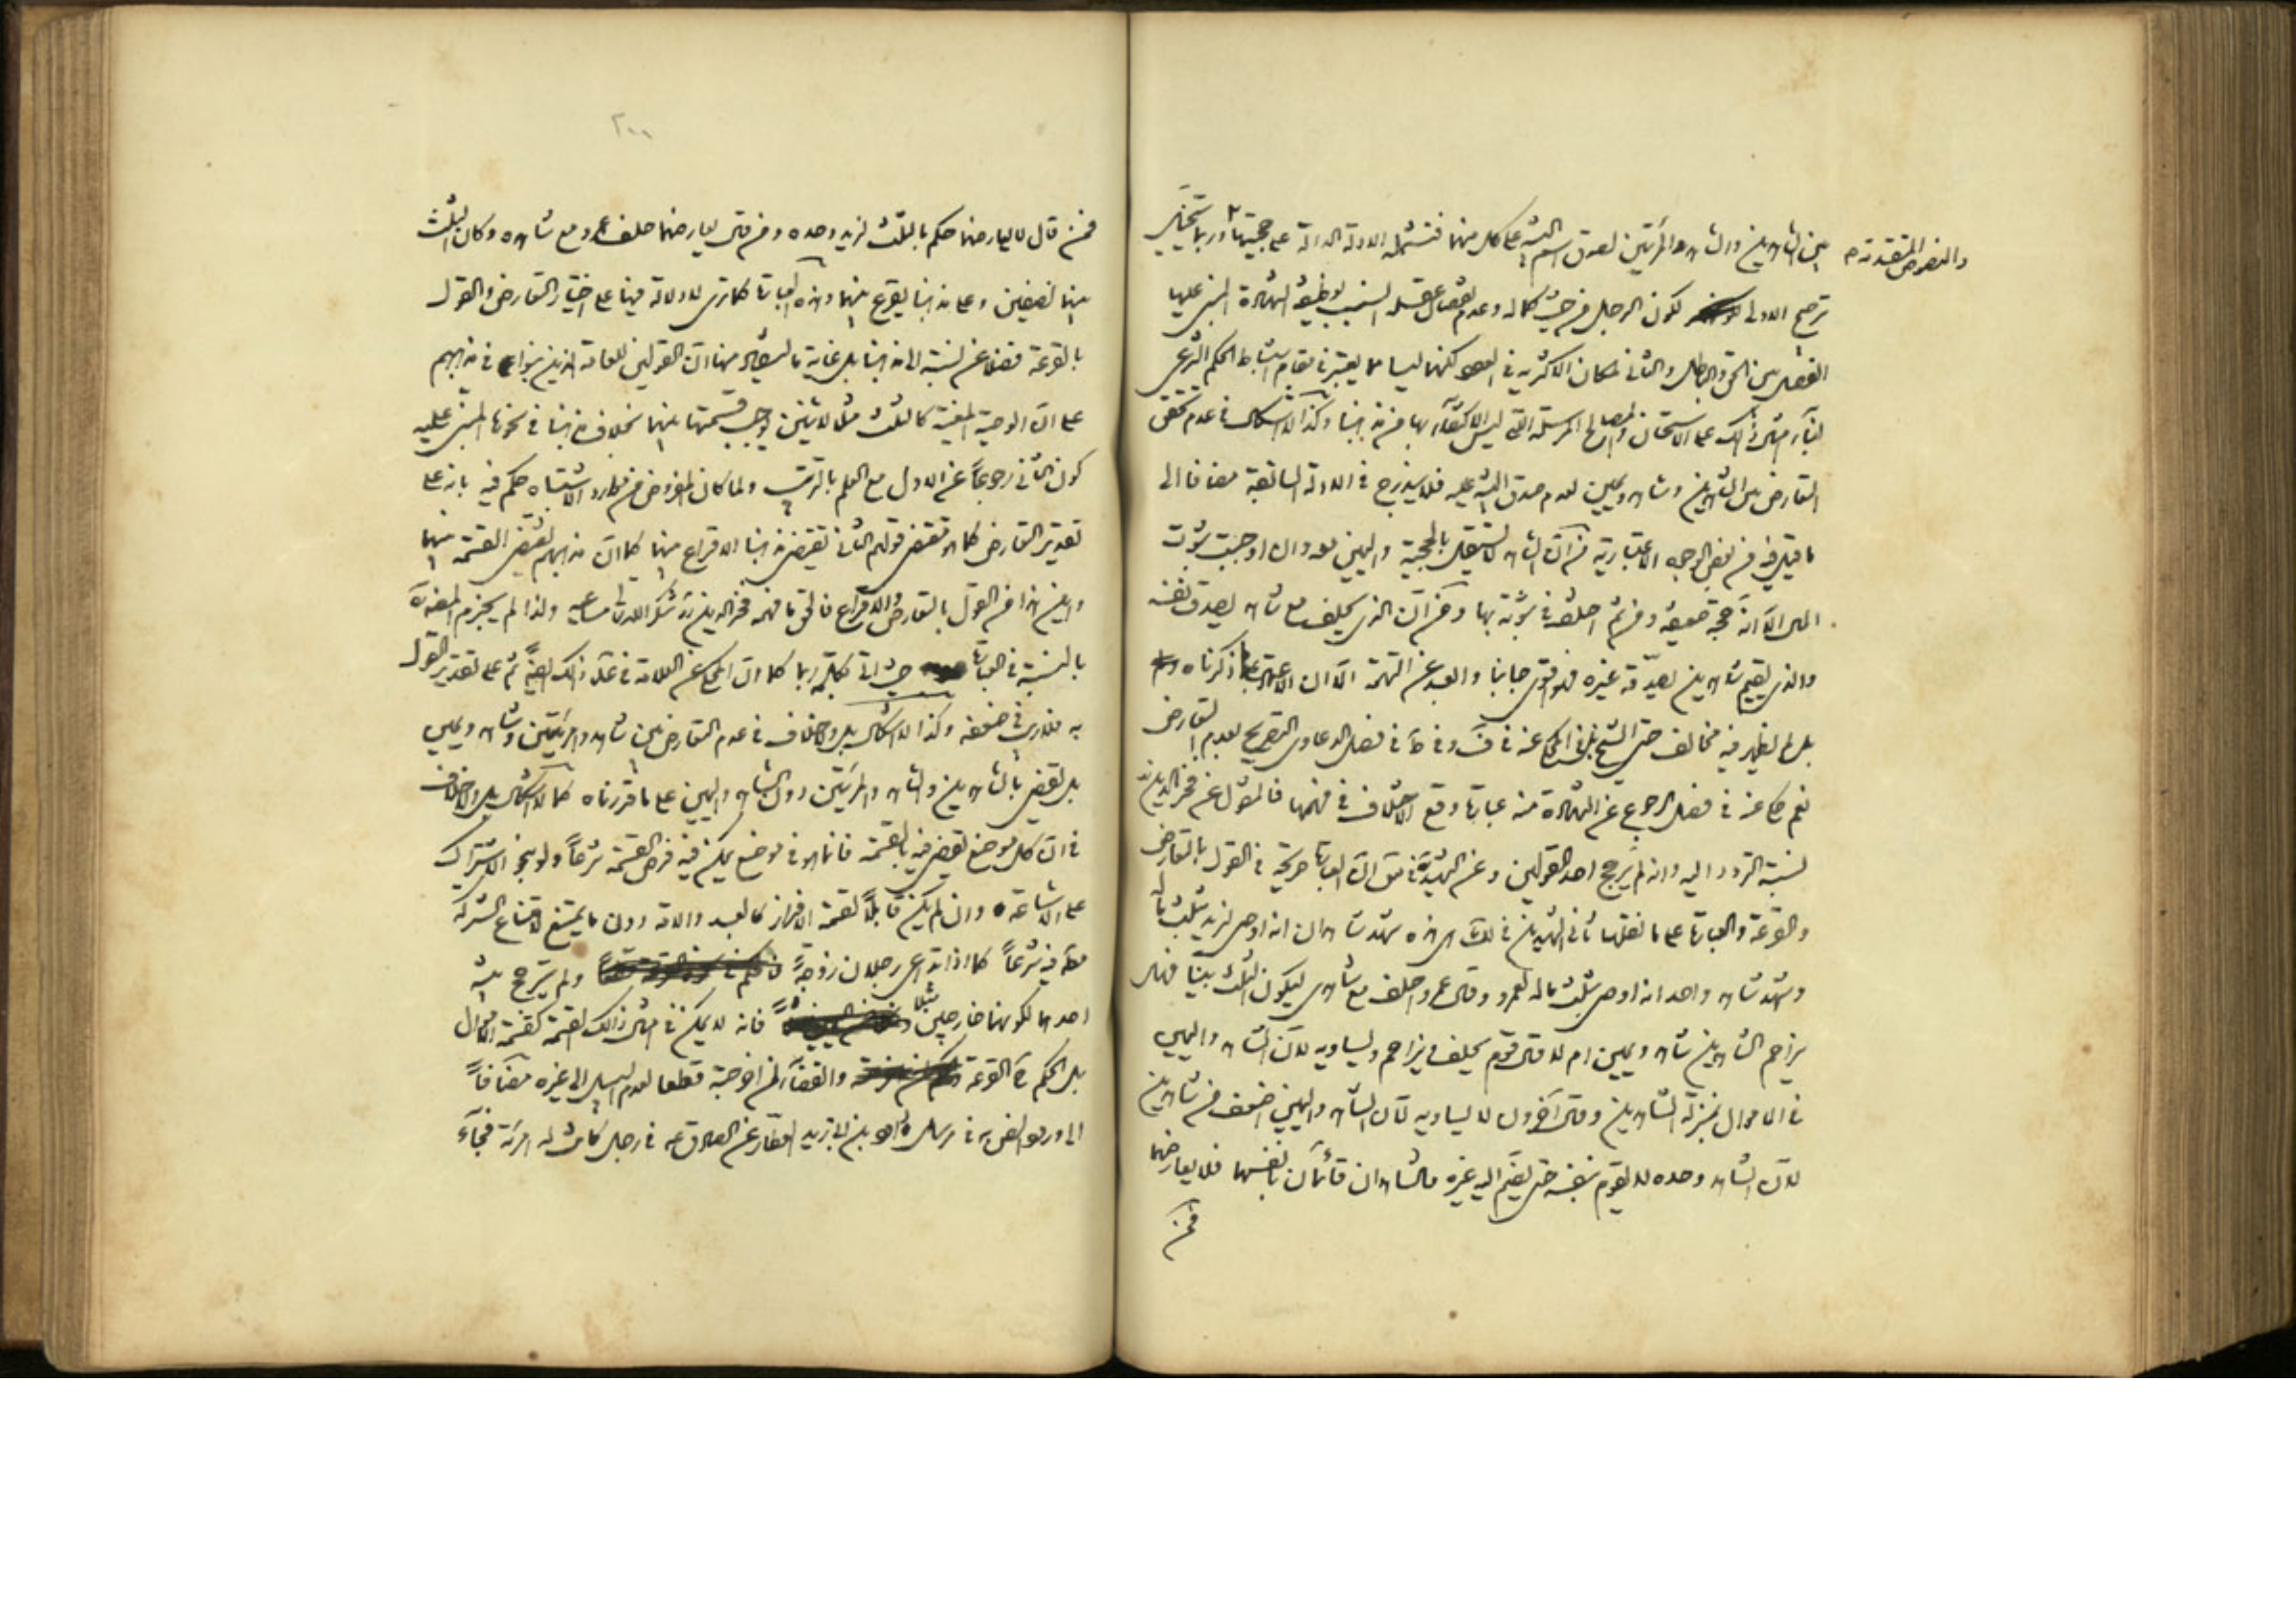 بين الشاهدين والشاهد والمرأتين لصدق اسم البينة على كل منهما فتشمله الادلة الدالة على حجيتها وربما يتخيل
والنصوص المتقدمة
ترجيح الاولى لكون الرجل من حيث كماله وعدم نقصان عقله انسب بوظيفة الشهادة المبنى عليها
الفصل بين الحق والباطل والثانى لمكان الاكثرية فى العدد لكنهما ليسا مما يعتبر فى مقام استنباط الحكم الشرعى
لبناء مثل ذلك على الاستحسان والمصالح المرسلة التى ليس الاكتفاء بها من مذهبنا وكذا لا اشكال فى عدم تحقق
التعارض بين الشاهدين وشاهد ويمين لعدم صدق البينة عليه فلا يندرج فى الادلة السابقة مضافا الى
ما قيل فيه من بعض الوجوه الاعتبارية من ان الشاهد لا يستقل بالحجية واليمين معه وان اوجبت ثبوت
المال الا انه حجة ضعيفة ومن ثم اختلف فى ثبوته بها ومن ان الذى يحلف مع شاهد يصدق نفسه
والذى يقيم شاهدين يصدقه غيره فهو اقوى جانبا وابعد عن التهمة الا ان الاعتماد على ما ذكرناه
بل لم يظهر فيه مخالف حتى الشيخ فى المحكى عنه فى ف وفى ط فى فصل الدعاوى التصريح بعدم التعارض
نعم حكى عنه فى فصل الرجوع عن الشهادة منه عبارة وقع الاختلاف فى فهمها فالمنقول عن فخر الدين
نسبة التردد اليه وانه لم يرجح احد القولين وعن الشهيد فى ان العبارة صريحة فى القول بالتعارض
والقرعة والعبارة على ما نقلها ثانى الشهيدين فى لك هى هذه شهد شاهدان انه اوصى لزيد بثلث ماله
وشهد شاهد واحد انه اوصى بثلث ماله لعمرو وقال عمرو احلف مع شاهدى ليكون الثلث بيننا فهل
يزاحم الشاهدين شاهد ويمين ام لا قال قوم يحلف ويزاحم ويساويه لان الشاهد واليمين
فى الاموال بمنزلة الشاهدين وقال آخرون لا يساويه لان الشاهد واليمين اضعف من شاهدين
لان الشاهد وحده لا يقوم بنفسه حتى يضم اليه غيره والشاهدان قائمان بانفسهما فلا يعارضهما
فمن
٢٠٠
فمن قال لا يعارضهما حكم بالثلث لزيد وحده ومن قال يعارضهما حلف عمرو مع شاهده وكان الثلث
بينهما نصفين وعلى مذهبنا يقرع بينهما وهذه العبارة كما ترى لا دلالة فيها على اختيار التعارض والقول
بالقرعة فضلا عن نسبة الى مذهبنا بل غاية ما يستفاد منها ان القولين للعامة الذين بنوا فى مذاهبهم
على ان الوصية المعينة كالثلث مثلا لاثنين توجب قسمتها بينهما بخلاف مذهبنا فى نحوها المبنى عليه
كون الثانى رجوعا عن الاول مع العلم بالترتيب ولما كان المفروض من موارد الاشتباه حكم فيه بانه على
تقدير التعارض كما هو مقتضى قولهم الثانى يقتضى مذهبنا الاقراع بينهما كما ان مذهبهم يقتضى القسمة بينهما
واين هذا من القول بالتعارض والاقراع فالحق ما فهمه فخر الدين شكر الله تعالى مساعيه ولذا لم يجزم المصنف ره
بالنسبة فى العبارة حيث اتى بكلمة ربما كما ان المحكى عن العلامة فى عد ذلك ايضا ثم على تقدير القول
به فلا ريب فى ضعفه وكذا لا اشكال بل ولا خلاف فى عدم التعارض بين شاهد وامرأتين وشاهد ويمين
بل يقضى بالشاهدين والشاهد والمرأتين دون الشاهد واليمين على ما قررناه كما لا اشكال بل ولا خلاف
فى ان كل موضع يقضى فيه بالقسمة فانما هو فى موضع يمكن فيه فرض القسمة شرعا ولو بنحو الاشتراك
على الاشاعة وان لم يكن قابلا لقسمة الافراز كالعبد والامة دون ما يمتنع لامتناع الشركة
فيه شرعا كما اذا تداعى رجلان زوجة ولم يترجح بينة
احدهما لكونهما خارجين مثلا فانه لا يمكن فى مثل ذلك القسمة كقسمة المال
بل الحكم ح القرعة والقضاء لمن اخرجته قطعا لعدم السبيل الى غيره مضافا
الى ورود النص به فى مرسل داود بن ابى يزيد العطار عن الصادق ع فى رجل كانت له امرأة فجاء